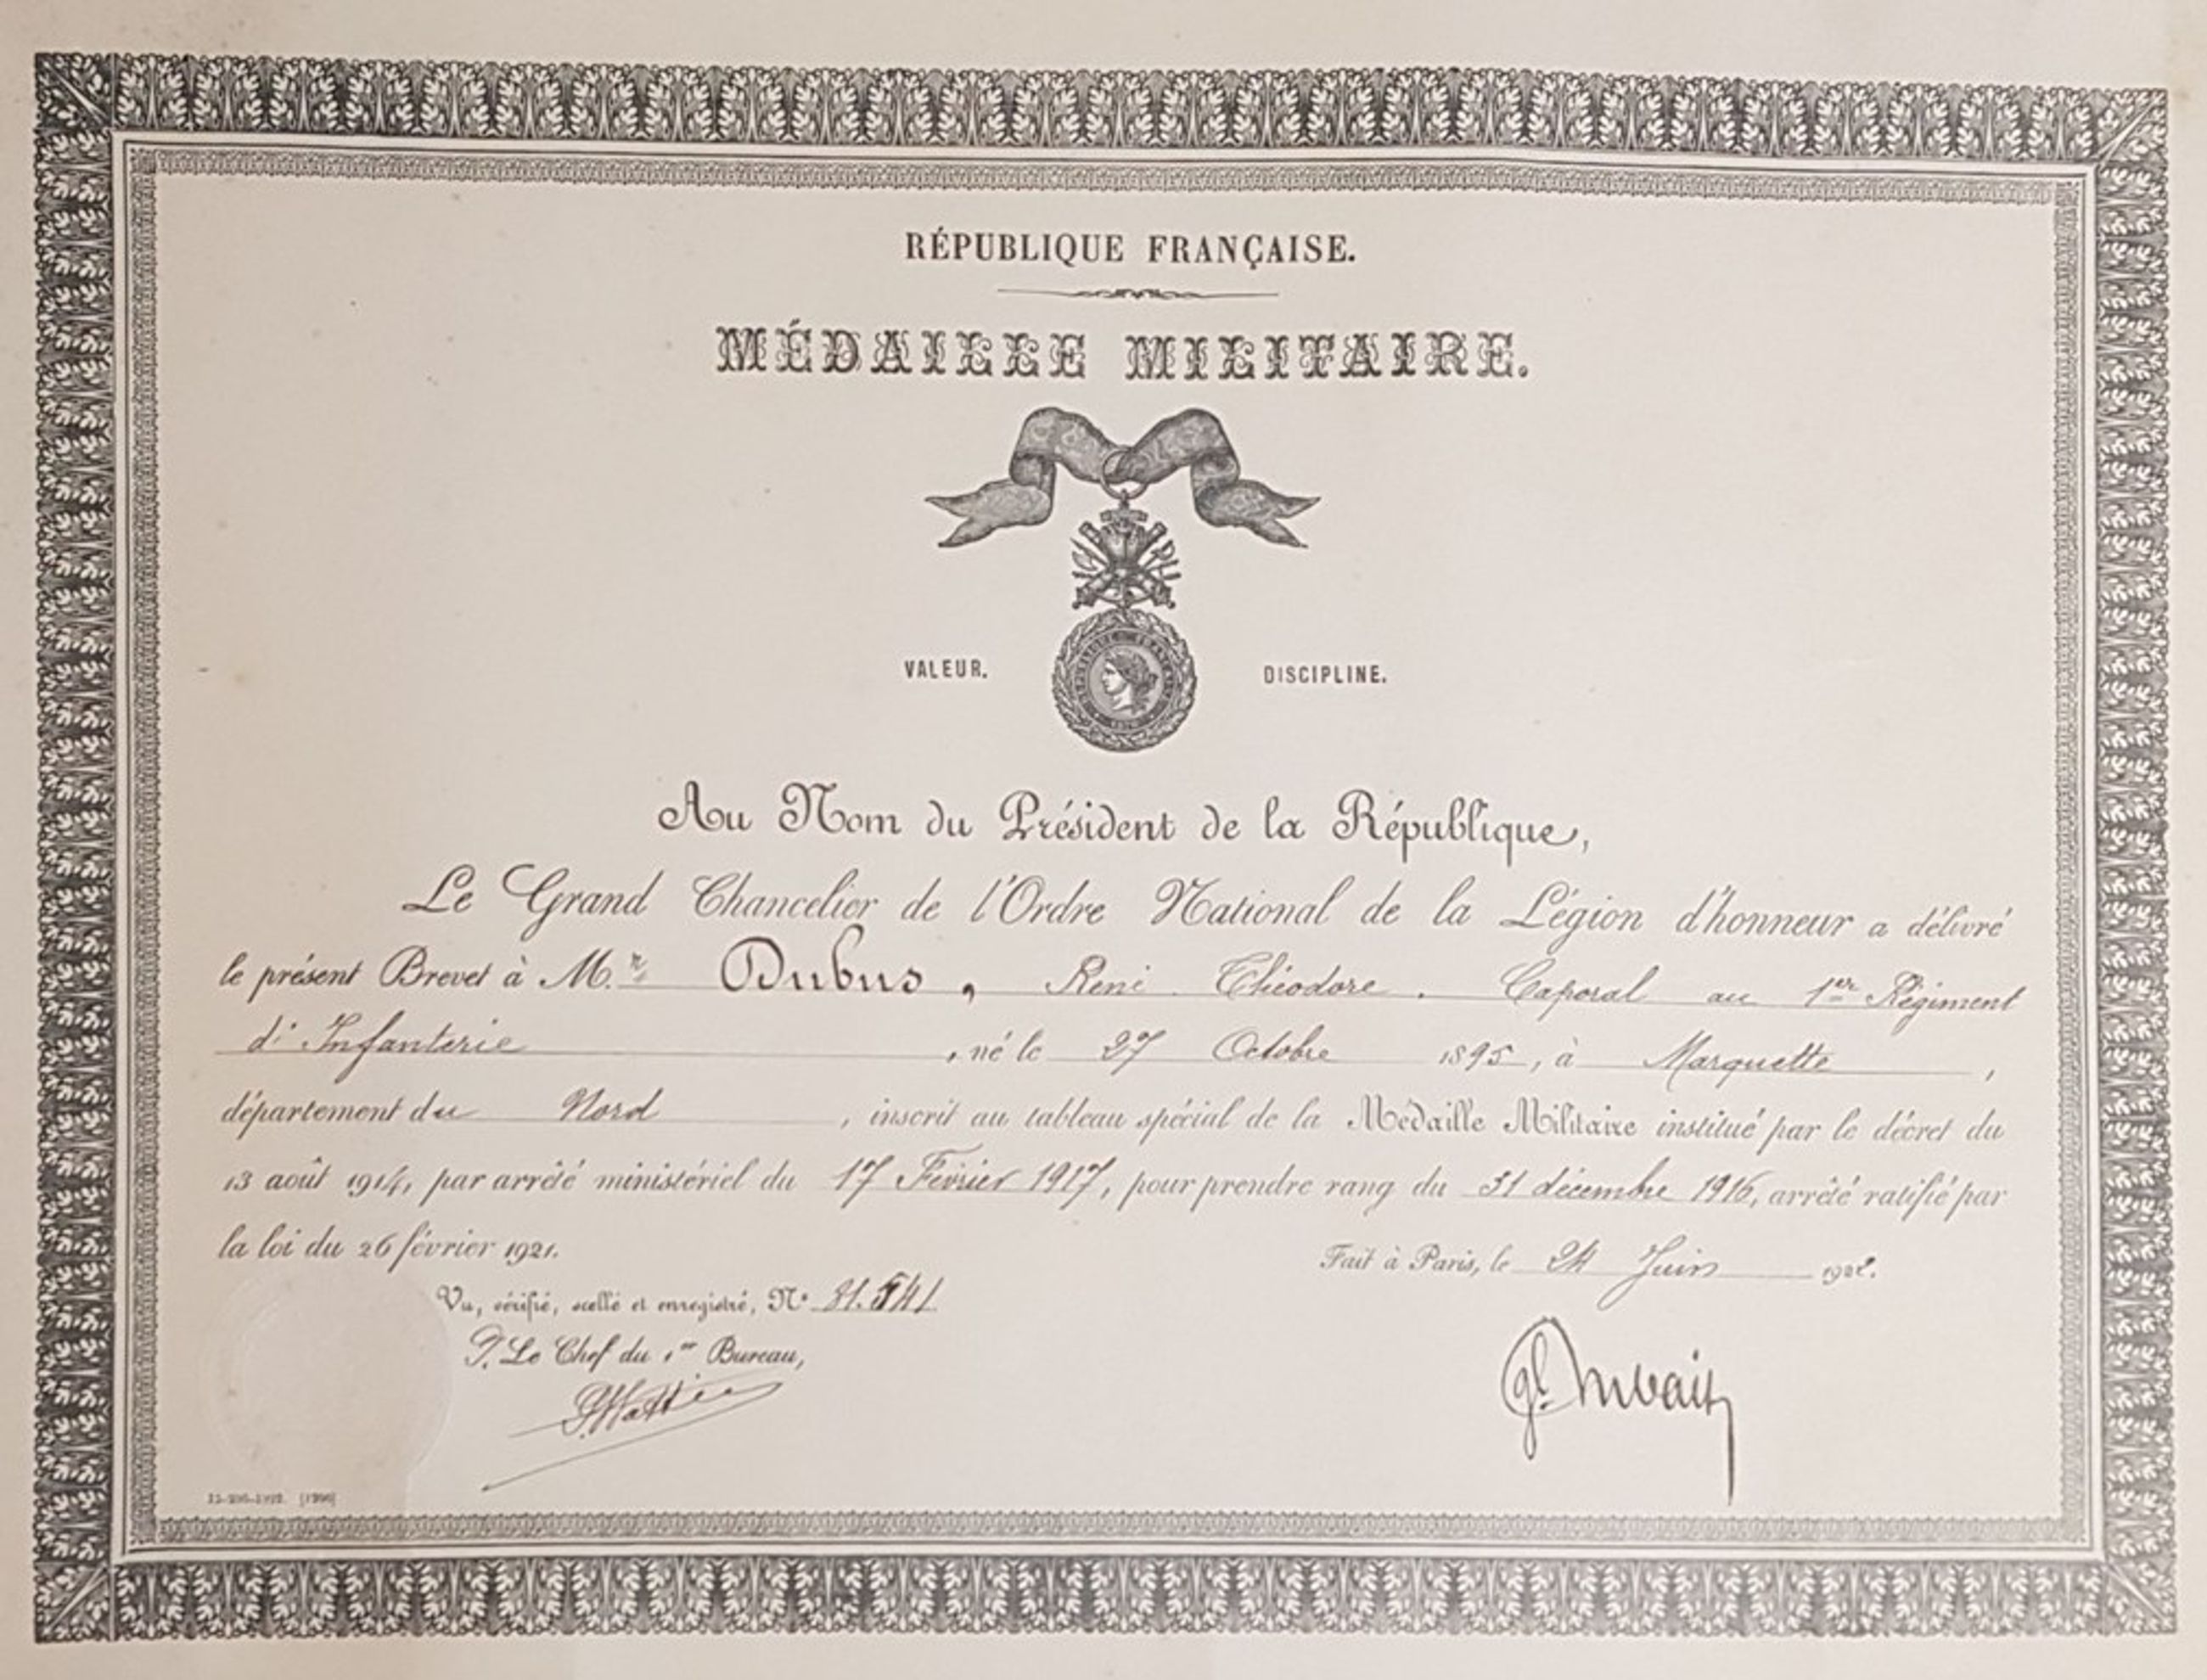 RÉPUBLIQUE FRANÇAISE.
MÉDAILLE MILITAIRE.
VALEUR. DISCIPLINE.
Au Nom du Président de la République,
Le Grand Chancelier de l'Ordre National de la Légion d'honneur a délivré
le présent Brevet à M.r Dubus, René Théodore. Caporal au 1er Régiment
d'Infanterie, né le 27 Octobre 1895, à Marquette,
département du Nord, inscrit au tableau spécial de la Médaille Militaire institué par le décret du
13 août 1914, par arrêté ministériel du 17 Février 1917, pour prendre rang du 31 décembre 1916, arrêté ratifié par
la loi du 26 février 1921.
Fait à Paris, le 24 Juin 1922.
Vu, vérifié, scellé et enregistré, N° 31.541
P. Le Chef du 1er Bureau,